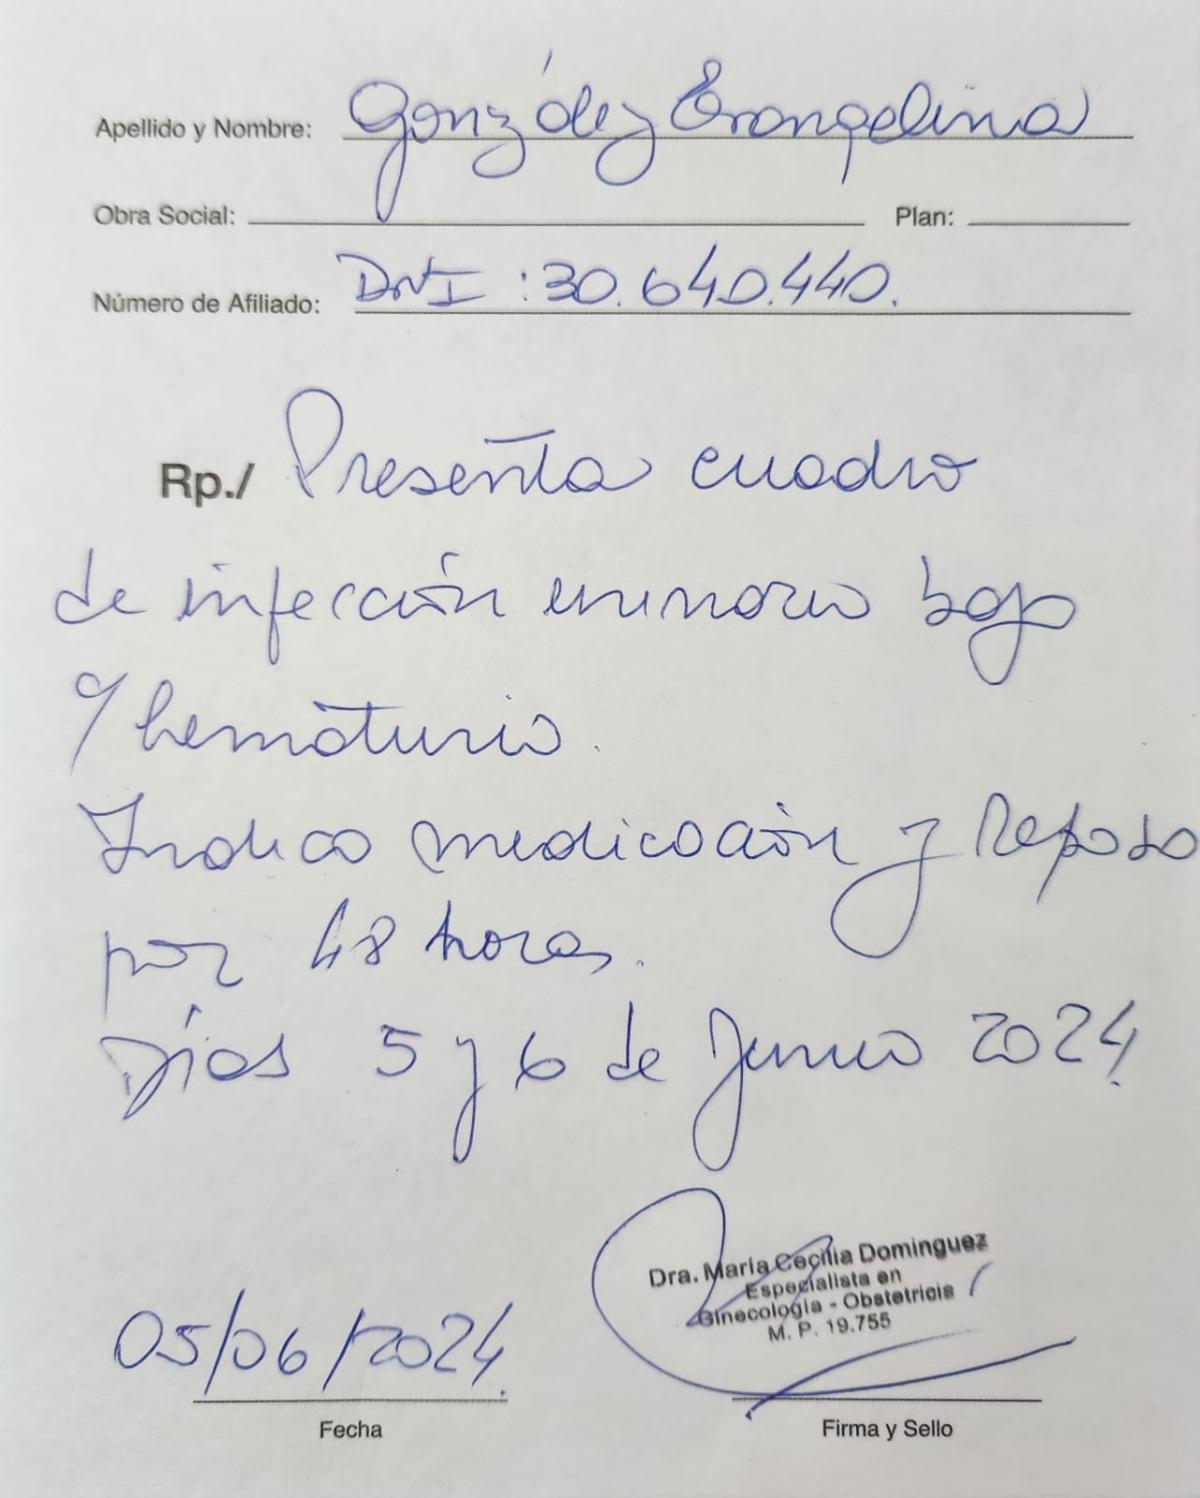 Apellido y Nombre: González Evangelina
Obra Social: Plan:
Número de Afiliado: DNI : 30.640.440.
Rp./ Presenta cuadro
de infección urinario bajo
c/ hematuria.
Indico medicación y Reposo
por 48 horas.
Días 5 y 6 de Junio 2024.
Dra. María Cecilia Dominguez
Especialista en
Ginecología - Obstetricia
M. P. 19.755
05/06/2024.
Fecha Firma y Sello